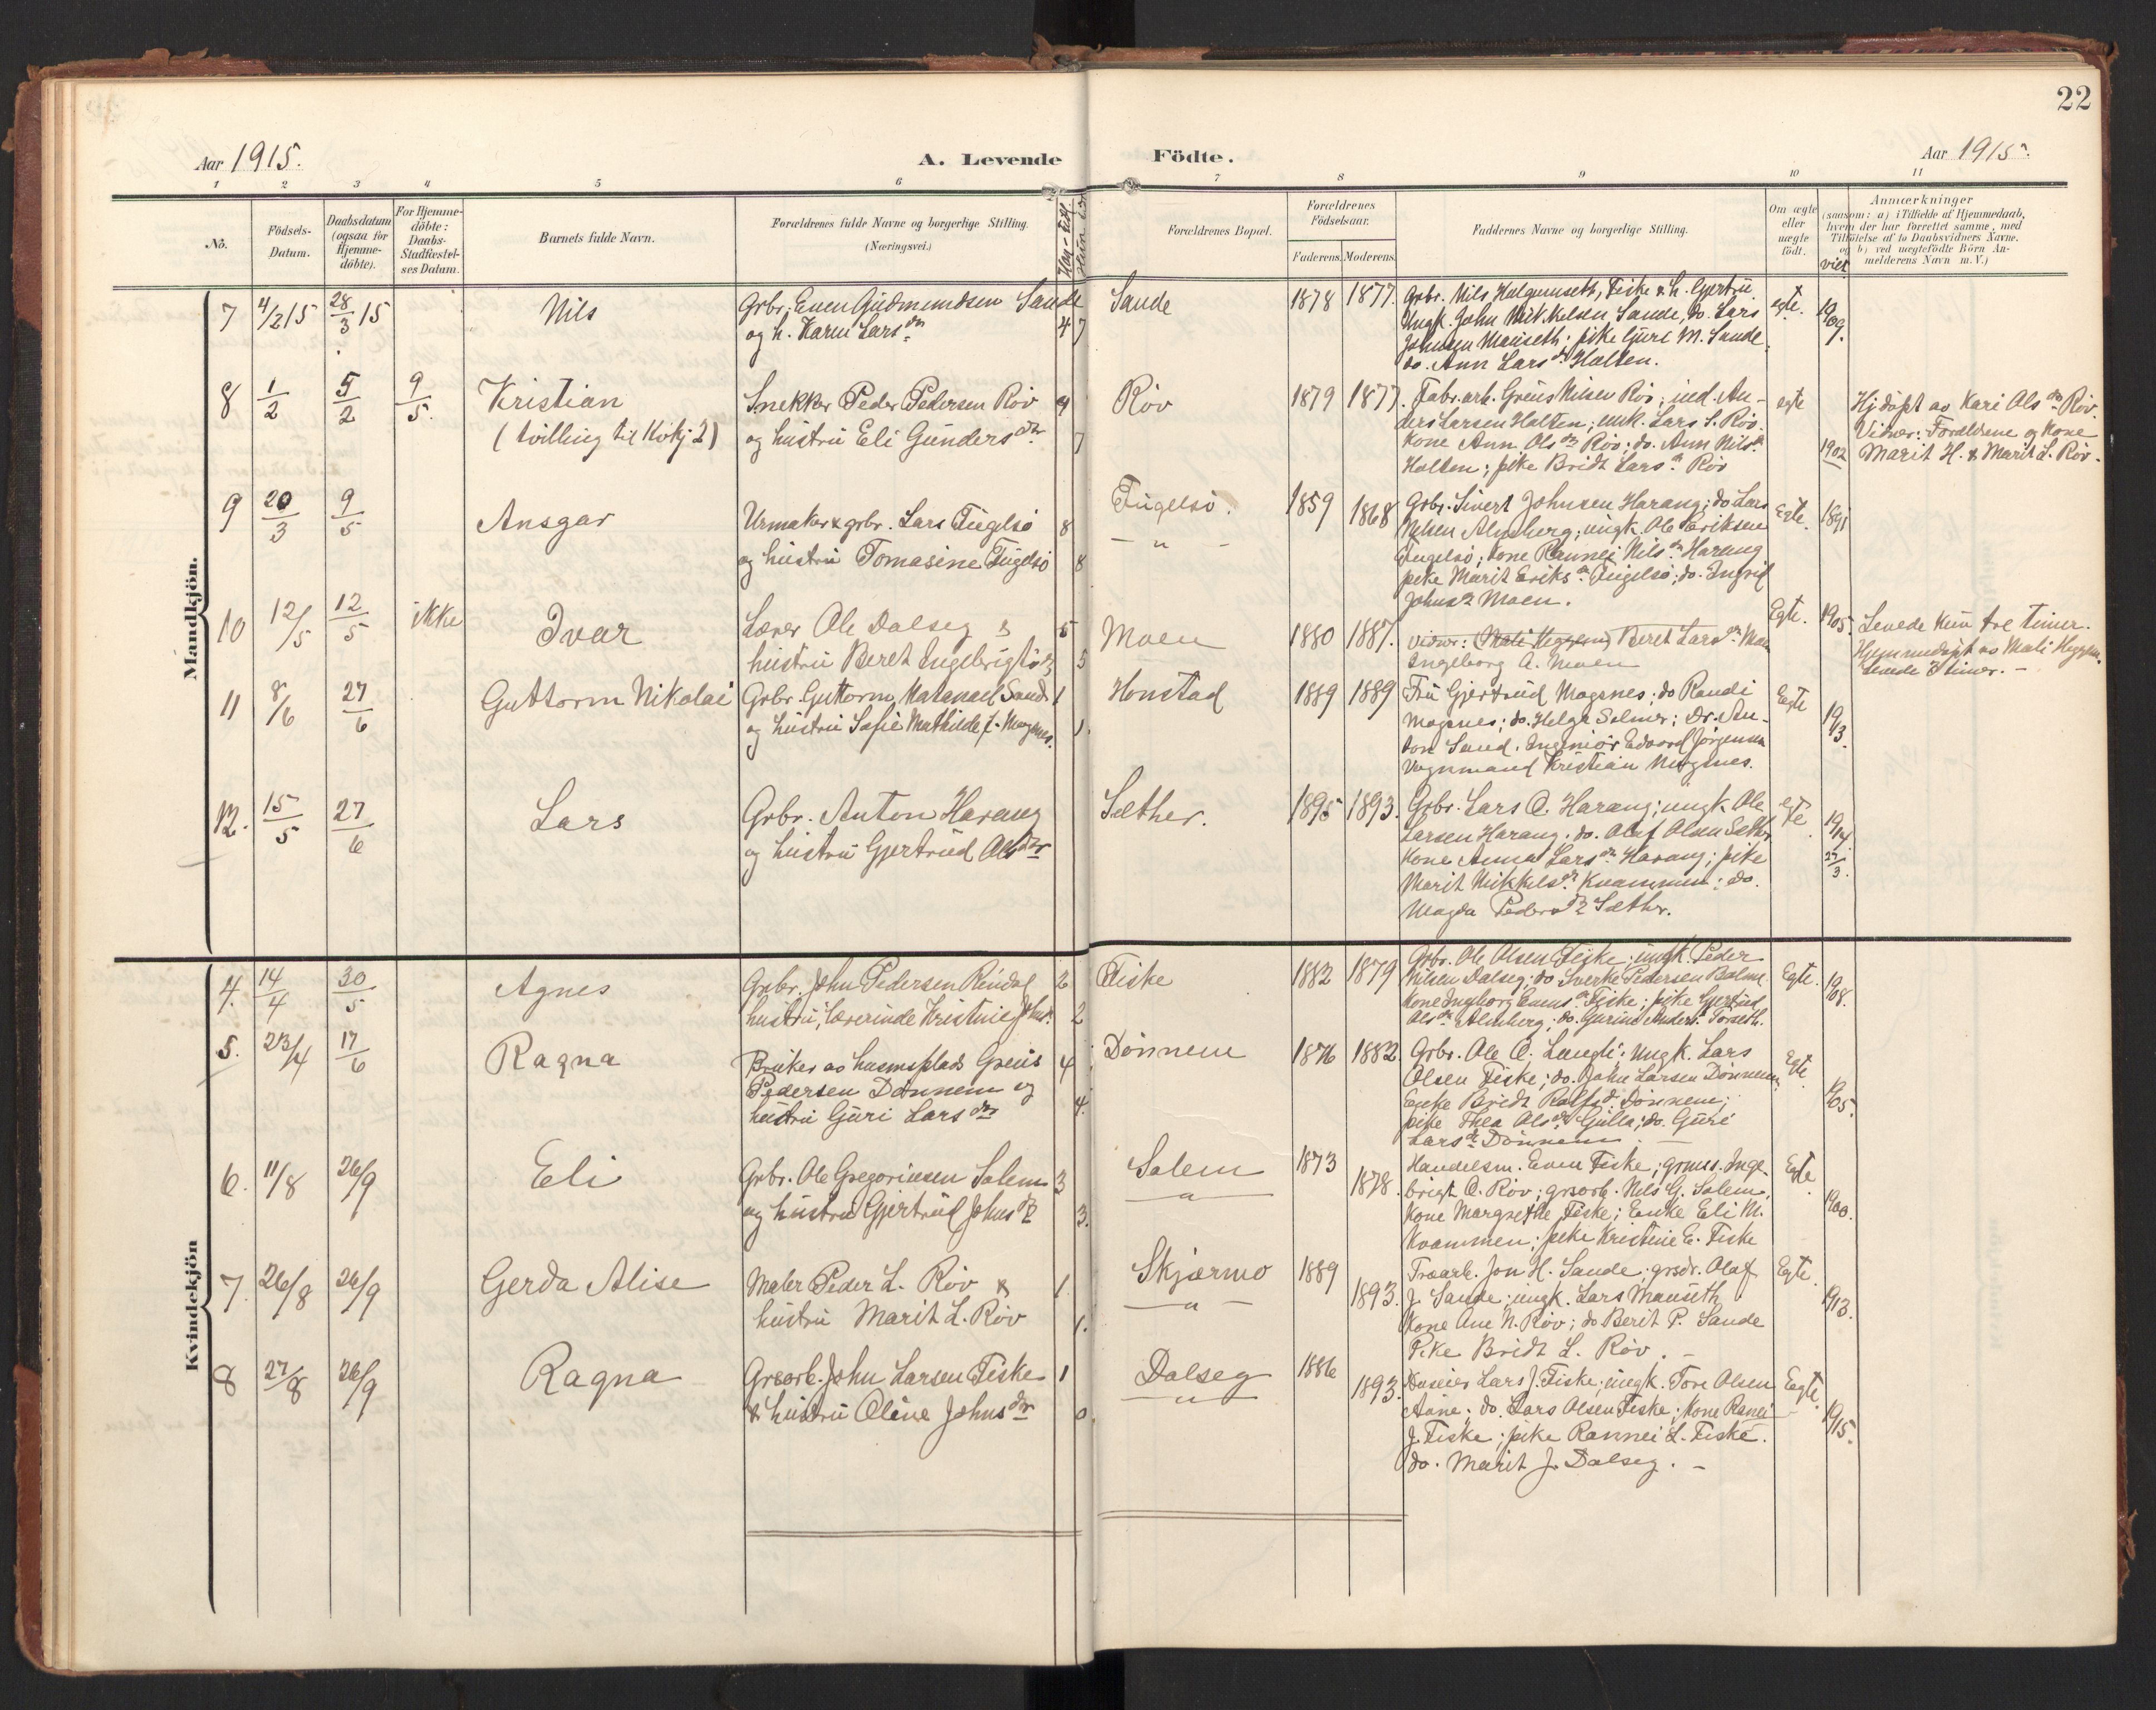 22
Aar 1915.
A. Levende Födte.
Aar 1915.
1 2 3 4 5 6 7 8 9 10 11
No.
Födsels-
Datum.
Daabsdatum
(ogsaa for
Hjemme-
döbte).
For Hjemme-
döbte:
Daabs-
Stadfæstel-
ses Datum.
Barnets fulde Navn.
Forældrenes fulde Navne og borgerlige Stilling
(Næringsvei.)
Forældrenes Bopæl.
Forældrenes
Födselsaar.
Faderens. Moderens.
Faddernes Navne og borgerlige Stilling.
Om ægte
eller
uægte
födt.
viet
Anmærkninger
(saasom: a) i Tilfælde af Hjemmedaab,
hvem der har forrettet samme, med
Tilföielse af to Daabsvidners Navne.
og b) ved uægtefödte Börn An-
melderens Navn m. V.)
Mandkjön.
7 4/2 15 28/3 15 Nils
Grbr. Even Gudmundsen Sande
og h. Karen Larsdtr.
4 7
Sande 1878 1877.
Grbr. Nils Halgunseth, Fiske & h. Gjertru.
Ungk. John Mikkelsen Sande, do. Lars
Johnsen Mauseth; pike Guri M. Sande
do. Ann Larsdtr Halten.
egte. 1909.
8 1/2 5/2 9/5. Kristian
(tvilling til Kvkj 2)
Snekker Peder Pedersen Röv
og hustru Eli Gundersdtr.
9 7
Röv 1879 1877.
Fabr.arb. Greus Nilsen Röv; ind. An-
ders Larsen Halten; unk. Lars S. Röv.
Kone Ann Olsdtr Röv; do. Ann Nilsdtr
Halten; pike Bridt Larsdtr Röv
egte 1902
Hjdöpt av Kari Olsdtr Röv.
Vidner: Forældrene og Kone
Marit H. & Marit L. Röv.
9 20/3 9/5 Ansgar
Urmaker & grbr. Lars Fugelsö
og hustru Tomasine Fugelsö
8 8
Fugelsö. 1859 1868
— " —
Grbr. Sivert Johnsen Harang; do Lars
Nilsen Almberg; ungk. Ole Eriksen
Fugelsö; Kone Rannei Nilsdtr Harang
pike Marit Eriksdtr Fugelsö; do. Ingrid
Johnsdtr Moen.
Egte. 1891
10 12/5 12/5 ikke Ivar
Lærer Ole Dalseg &
hustru Beret Ingebrigtsdtr
5 5
Moen 1880 1887.
vidner: Mali Heggem, Beret Larsdtr Moen
Ingeborg A. Moen
Egte. 1905.
Levede kun tre timer.
Hjemmedöpt av Mali Heggem.
Levede 3 timer. —
11 8/6 27/6 Guttorm Nikolai
Grbr. Guttorm Natanael Sand
og hustru Sofie Mathilde f. Magnes.
1 1.
Honstad 1889 1889
Fru Gjertrud Magnes; do Randi
Magnes; do. Helga Solmer; Dr. An-
ton Sand. Ingeniör Edvard Jörgensen
Vognmand Kristian Magnes.
Egte 1913.
12. 15/5 27/6 Lars
Grbr. Anton Harang
og hustru Gjertrud Olsdtr
Sæther. 1895 1893.
Grbr. Lars O. Harang; ungk Ole
Larsen Harang. do. Olaf Olsen Sæther
Kone Anna Larsdtr Harang; pike
Marit Mikkelsdtr Kvammen; do.
Magda Pedersdtr Sæther.
egte. 1914. 27/3.
Kvindekjön
4. 14/4 30/5 Agnes
Grbr. John Pedersen Rindal
hustru, lærerinde Kristine Johnsdtr.
2 2
Fiske 1882 1879
Grbr. Ole Olsen Fiske; ungk. Peder
Nilsen Dalseg; do Sverke Pedersen Bolme
Kone Ingeborg Evensdtr Fiske; pike Gjertrud
Olsdtr Almberg; do. Gurine Andersdtr Toraeth.
Egte. 1908.
5. 23/4 17/6 Ragna
Bruker av husmsplads Greus
Pedersen Dönnem og
hustru Guri Larsdtr
4 4.
Dönnem 1876 1882.
Grbr. Ole O. Langli; Ungk. Lars
Olsen Fiske; do. John Larsen Dönnem
Enke Bridt Rolfsd. Dönnem;
pike Thea Olsdtr Gulla; do. Guri
Larsdtr Dönnem
Egte. 1905.
6. 11/8 26/9 Eli
Grbr. Ole Gregoriusen Solem
og hustru Gjertrud Johnsdtr
3 3.
Solem 1873 1878.
— " —
Handelsm. Even Fiske; grms. Inge-
brigt O. Röv; grsorb. Nils G. Solem,
Kone Margrethe Fiske; Enke Eli M.
Kvammen; pike Kristine E. Fiske
Egte. 1900.
7. 26/8 26/9 Gerda Alise
Maler Peder L. Röv &
hustru Marit L. Röv
1 1.
Skjærmo 1889 1893.
— " —
Træarb. Jon H. Sande; grsdr. Olaf
J. Sande; ungk. Lars Mauseth
Kone Ane N. Röv; do Berit P. Sande
Pike Bridt L. Röv. —
Egte. 1913.
8 27/8 26/9 Ragna
Grsorb. John Larsen Fiske
& hustru Oline Johnsdtr
1 0
Dalseg 1886 1893.
— " —
Huseier Lars J. Fiske; ungk. Tore Olsen
Aune; do. Lars Olsen Fiske; Kone Ranei
J. Fiske; pike Rannei L. Fiske.
do. Marit J. Dalseg. —
Egte. 1915.